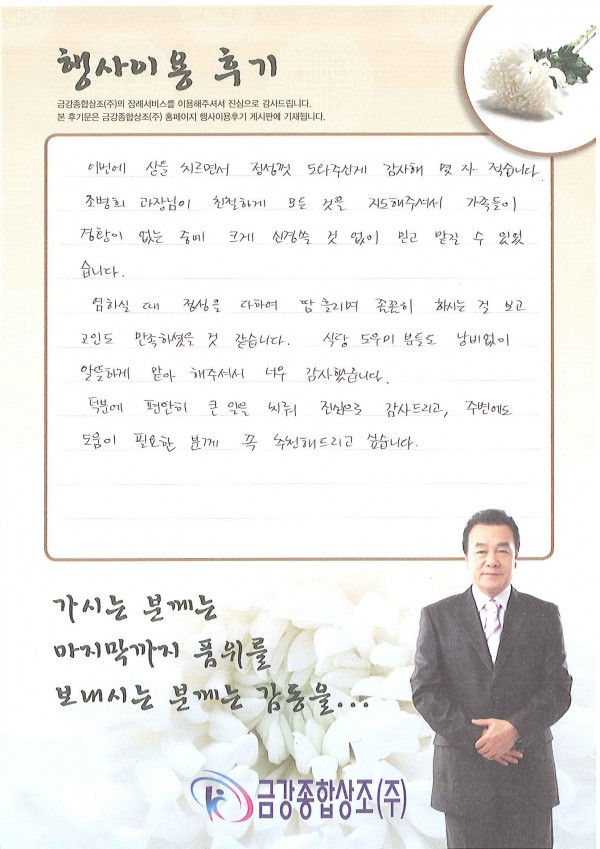 행사이용 후기
금강종합상조(주)의 장례서비스를 이용해주셔서 진심으로 감사드립니다.
본 후기문은 금강종합상조(주) 홈페이지 행사이용후기 게시판에 기재됩니다.
이번에 상을 치르면서 정성껏 도와주신게 감사해 몇 자 적습니다.
조병희 과장님이 친절하게 모든 것을 지도해주셔서 가족들이
경황이 없는 중에 크게 신경쓸 것 없이 믿고 맡길 수 있었
습니다.
염하실 때 정성을 다하여 땀 흘리며 꼼꼼히 하시는 걸 보고
고인도 만족하셨을 것 같습니다. 식당 도우미 분들도 낭비없이
알뜰하게 맡아 해주셔서 너무 감사했습니다.
덕분에 편안히 큰 일을 치뤄 진심으로 감사드리고, 주변에도
도움이 필요한 분께 꼭 추천해드리고 싶습니다.
가시는 분께는
마지막까지 품위를
보내시는 분께는 감동을...
금강종합상조(주)